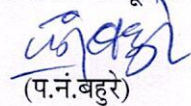 (प.नं.बहुरे)